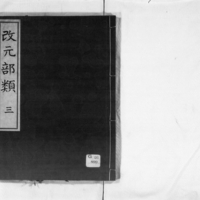 改元部類 三